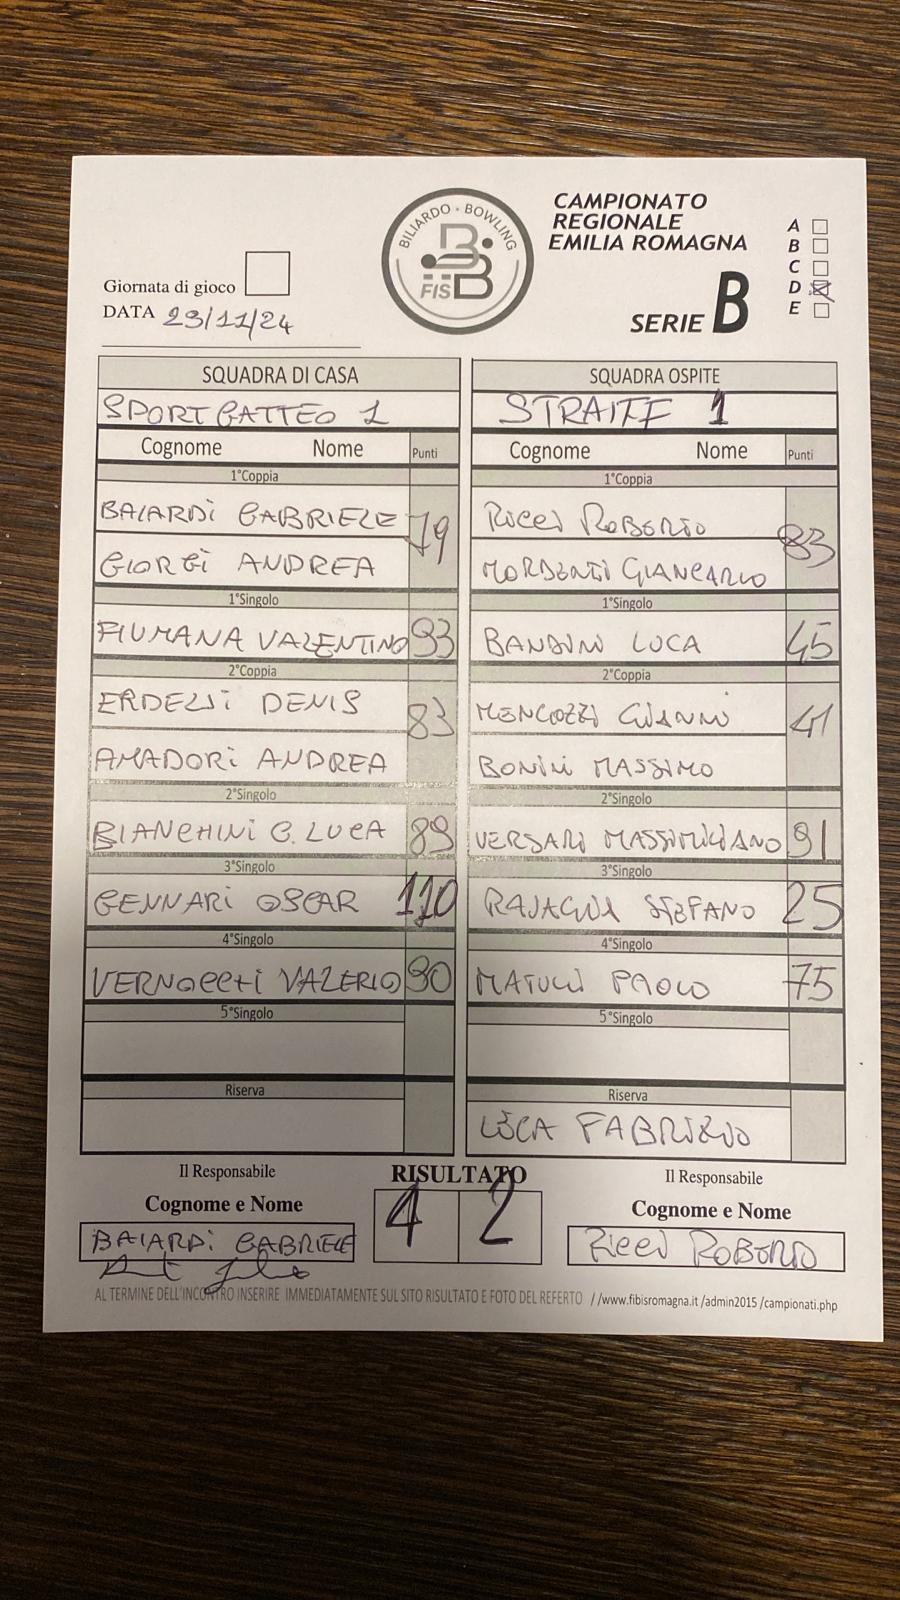 BILIARDO - BOWLING
FISBB
CAMPIONATO
REGIONALE
EMILIA ROMAGNA
SERIE B
A
B
C
D
E
Giornata di gioco
DATA 23/11/24
SQUADRA DI CASA
SPORT GATTEO 1
Cognome Nome Punti
1°Coppia
BAIARDI GABRIELE 79
GIORGI ANDREA
1°Singolo
FIUMANA VALENTINO 93
2°Coppia
ERDELJI DENIS 83
AMADORI ANDREA
2°Singolo
BIANCHINI G. LUCA 89
3°Singolo
GENNARI OSCAR 110
4°Singolo
VERNOCCHI VALERIO 90
5°Singolo
Riserva
SQUADRA OSPITE
STRAIFF 1
Cognome Nome Punti
1°Coppia
RICCI ROBERTO 83
MORDENTI GIANCARLO
1°Singolo
BANDINI LUCA 45
2°Coppia
MENGOZZI GIANNI 41
BONINI MASSIMO
2°Singolo
VERSARI MASSIMILIANO 91
3°Singolo
STEFANO 25
4°Singolo
MATUCCI PAOLO 75
5°Singolo
Riserva
FABRIZIO
Il Responsabile
Cognome e Nome
BAIARDI GABRIELE
RISULTATO
4 2
Il Responsabile
Cognome e Nome
RICCI ROBERTO
AL TERMINE DELL'INCONTRO INSERIRE IMMEDIATAMENTE SUL SITO RISULTATO E FOTO DEL REFERTO //www.fibisromagna.it /admin2015 /campionati.php